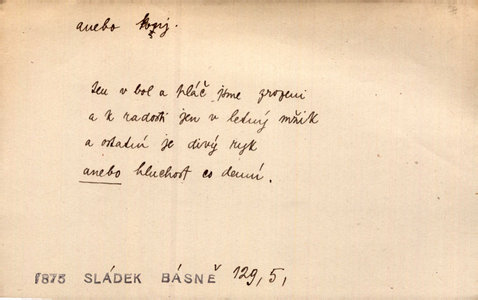 anebo konj.
jen v bol a pláč jsme zrozeni
a k radosti jen v letný mžik
a ostatní je divý ryk
anebo hluchost co denní.
1875 SLÁDEK BÁSNĚ 129, 5,